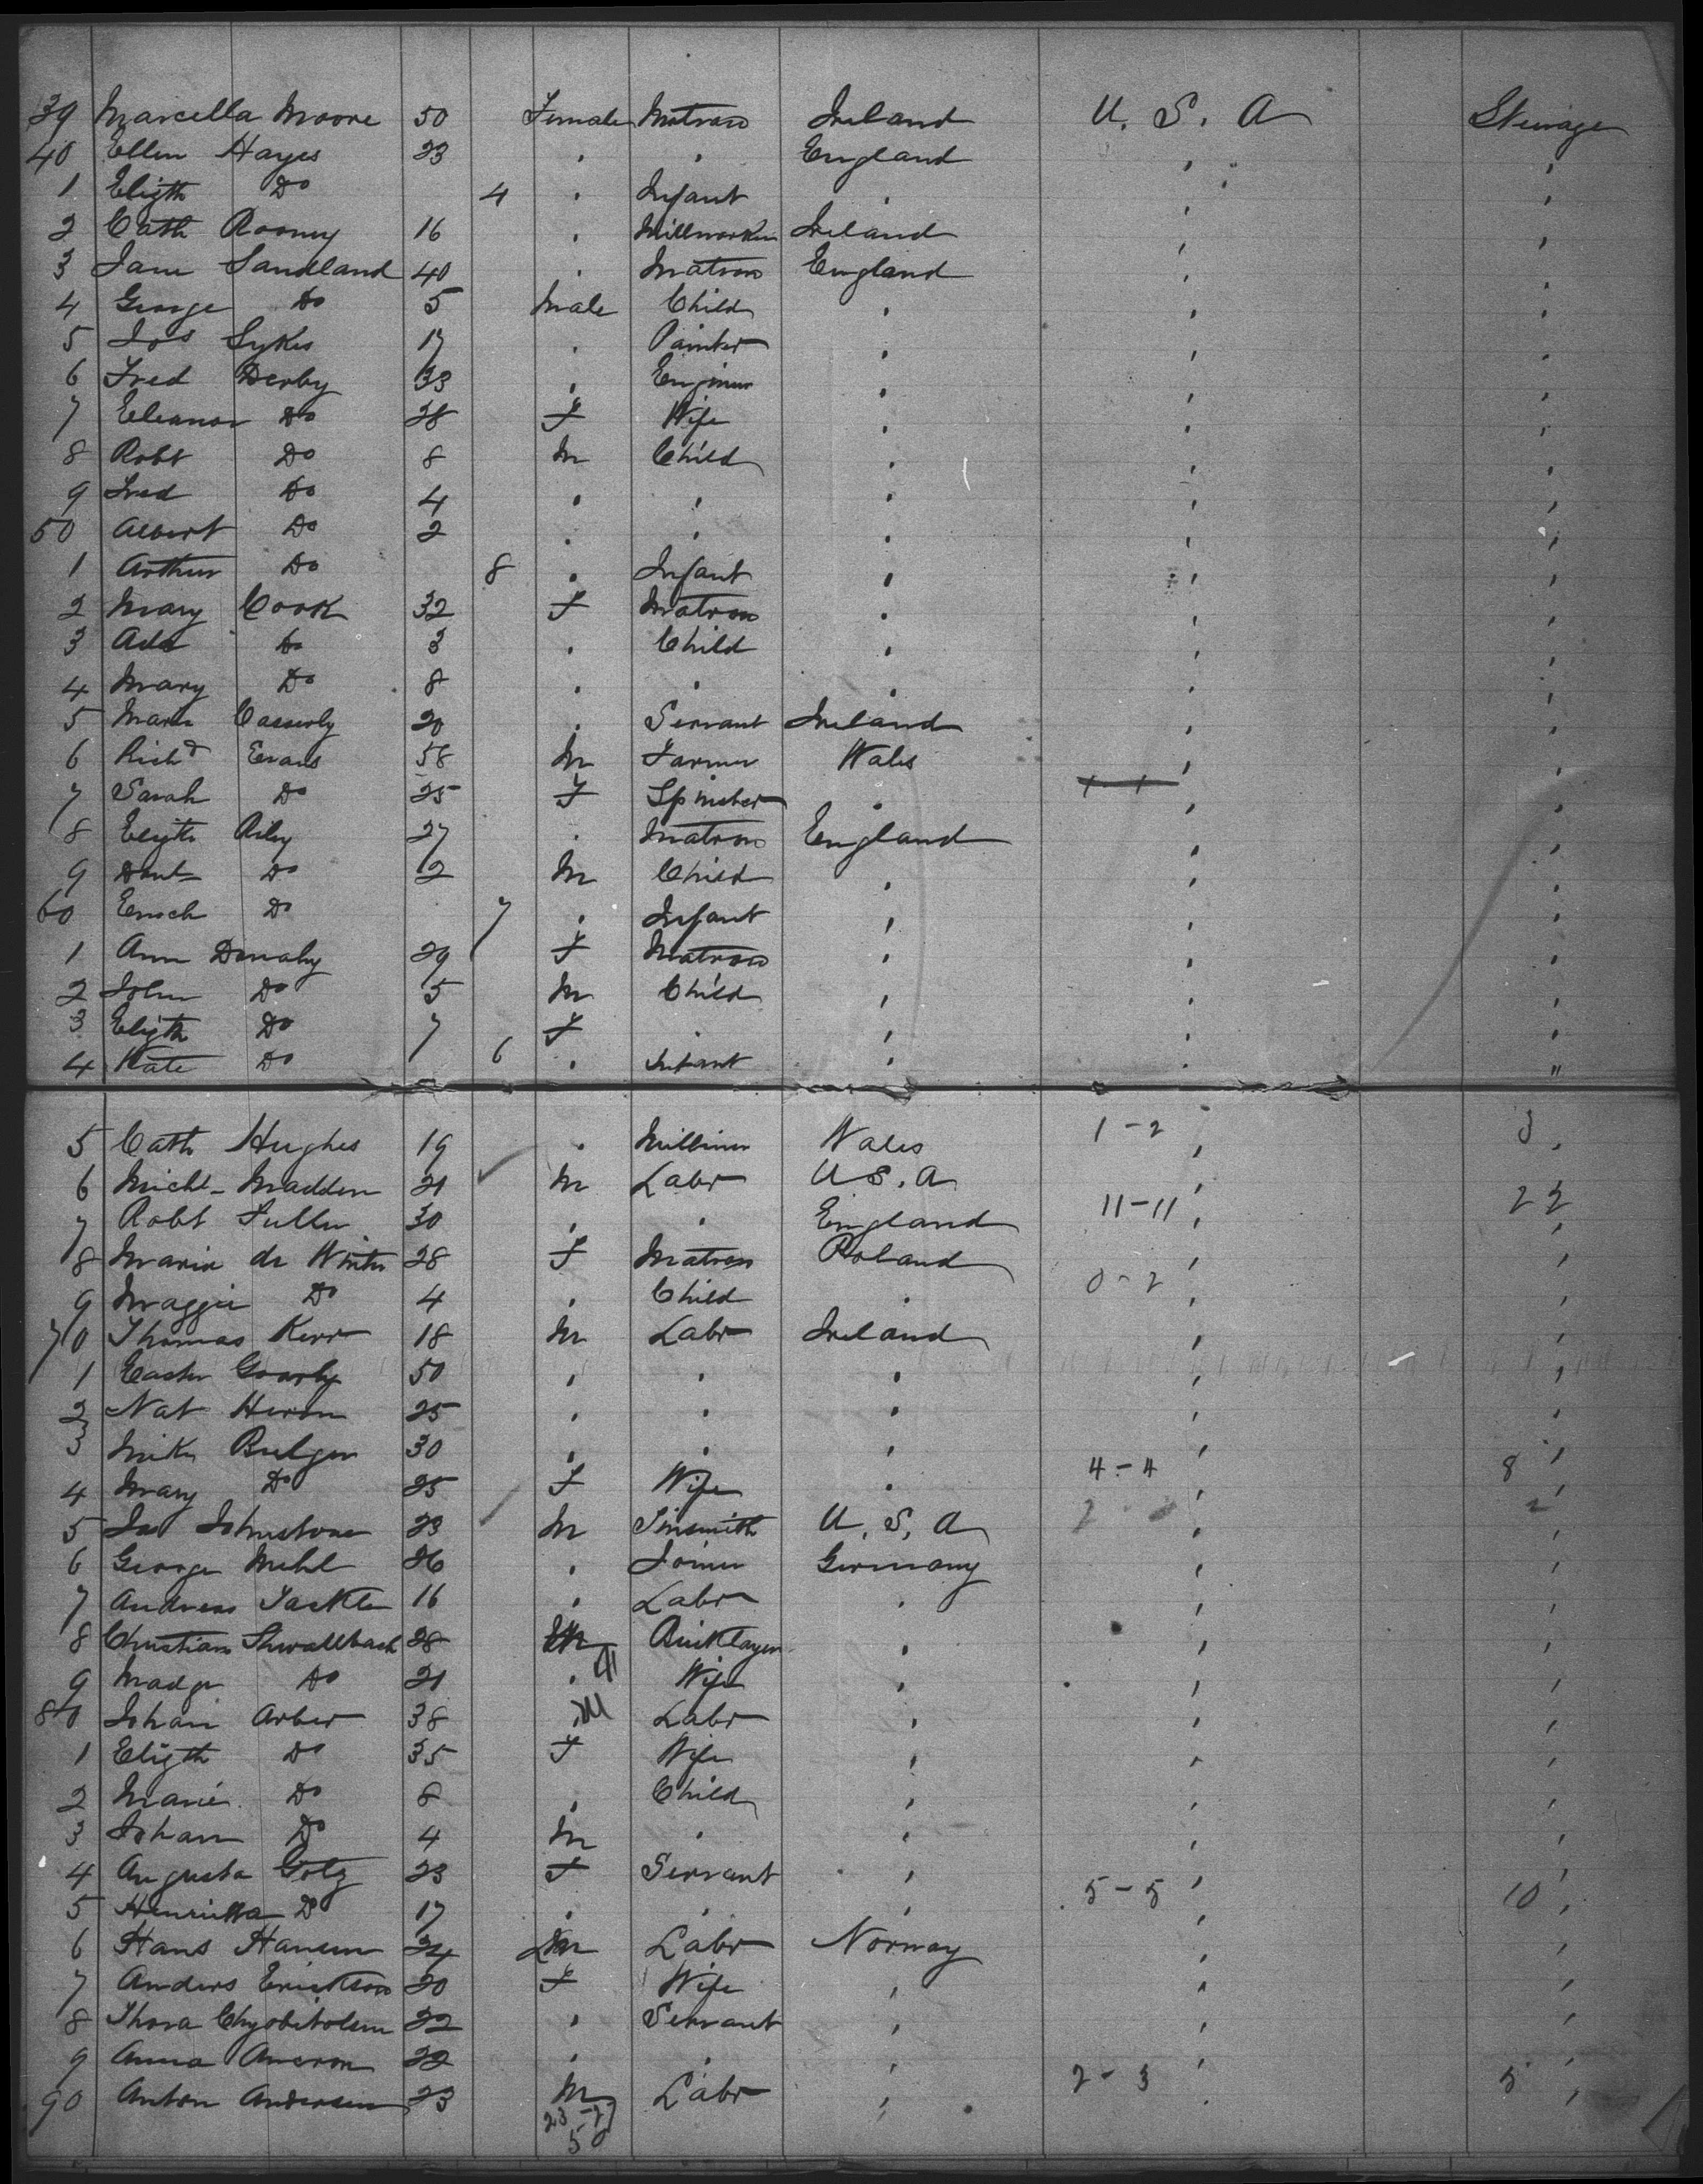 39 Marcella Moore 50 Female Matron Ireland U. S. A Steerage
40 Ellen Hayes 23 " " England " "
1 Elizth Do 4 " Infant " " "
2 Cath Rooney 16 " Millworker Ireland " "
3 Jane Sandland 40 " Matron England " "
4 George Do 5 Male Child " " "
5 Jos Sykes 17 " Painter " " "
6 Fred Derby 33 " Engineer " " "
7 Eleanor Do 28 F Wife " " "
8 Robt Do 8 M Child " " "
9 Fred Do 4 " " " " "
50 Albert Do 2 " " " " "
1 Arthur Do 8 " Infant " " "
2 Mary Cook 32 F Matron " " "
3 Ada Do 3 " Child " " "
4 Mary Do 8 " " " " "
5 Maria Casserly 20 " Servant Ireland " "
6 Richd Evans 58 M Farmer Wales " "
7 Sarah Do 25 F Spinster " 1-1 " "
8 Elizth Riley 27 " Matron England " "
9 Danl Do 2 M Child " " "
60 Enoch Do 7 " Infant " " "
1 Ann Donahy 29 F Matron " " "
2 John Do 5 M Child " " "
3 Elizth Do 7 F " " " "
4 Kate Do 6 " Infant " " "
5 Cath Hughes 19 " Milliner Wales 1-2 " 3 "
6 Michl Madden 21 M Labr U S. A " "
7 Robt Fuller 30 " " England 11-11 " 22 "
8 Maria de Winter 28 F Matron Poland " "
9 Maggie Do 4 " Child " 0-2 " "
70 Thomas Kerr 18 M Labr Ireland " "
1 Easter 50 " " " " "
2 Nat Heron 25 " " " " "
3 Mike Bulger 30 " " " " "
4 Mary Do 25 F Wife " 4-4 " 8 "
5 Jas Johnstone 23 M Tinsmith U. S. A 2 " 2 "
6 George Mehl 26 " Joiner Germany " "
7 Andreas 16 " Labr " " "
8 Christian Shwallbach 28 M Bricklayer " " "
9 Madge Do 21 " Wife " " "
80 Johan Arber 38 M Labr " " "
1 Elizth Do 35 F Wife " " "
2 Marie Do 8 " Child " " "
3 Johan Do 4 M " " " "
4 Augusta Gotz 23 F Servant " " "
5 Henrietta Do 17 " " " 5-5 " 10 "
6 Hans Hansen 24 M Labr Norway " "
7 Anders Erickson 20 F Wife " " "
8 Thora 22 " Servant " " "
9 Anna 22 " " " " "
90 Anton Andersen 23 M Labr " 2-3 " 5 "
23-27
50